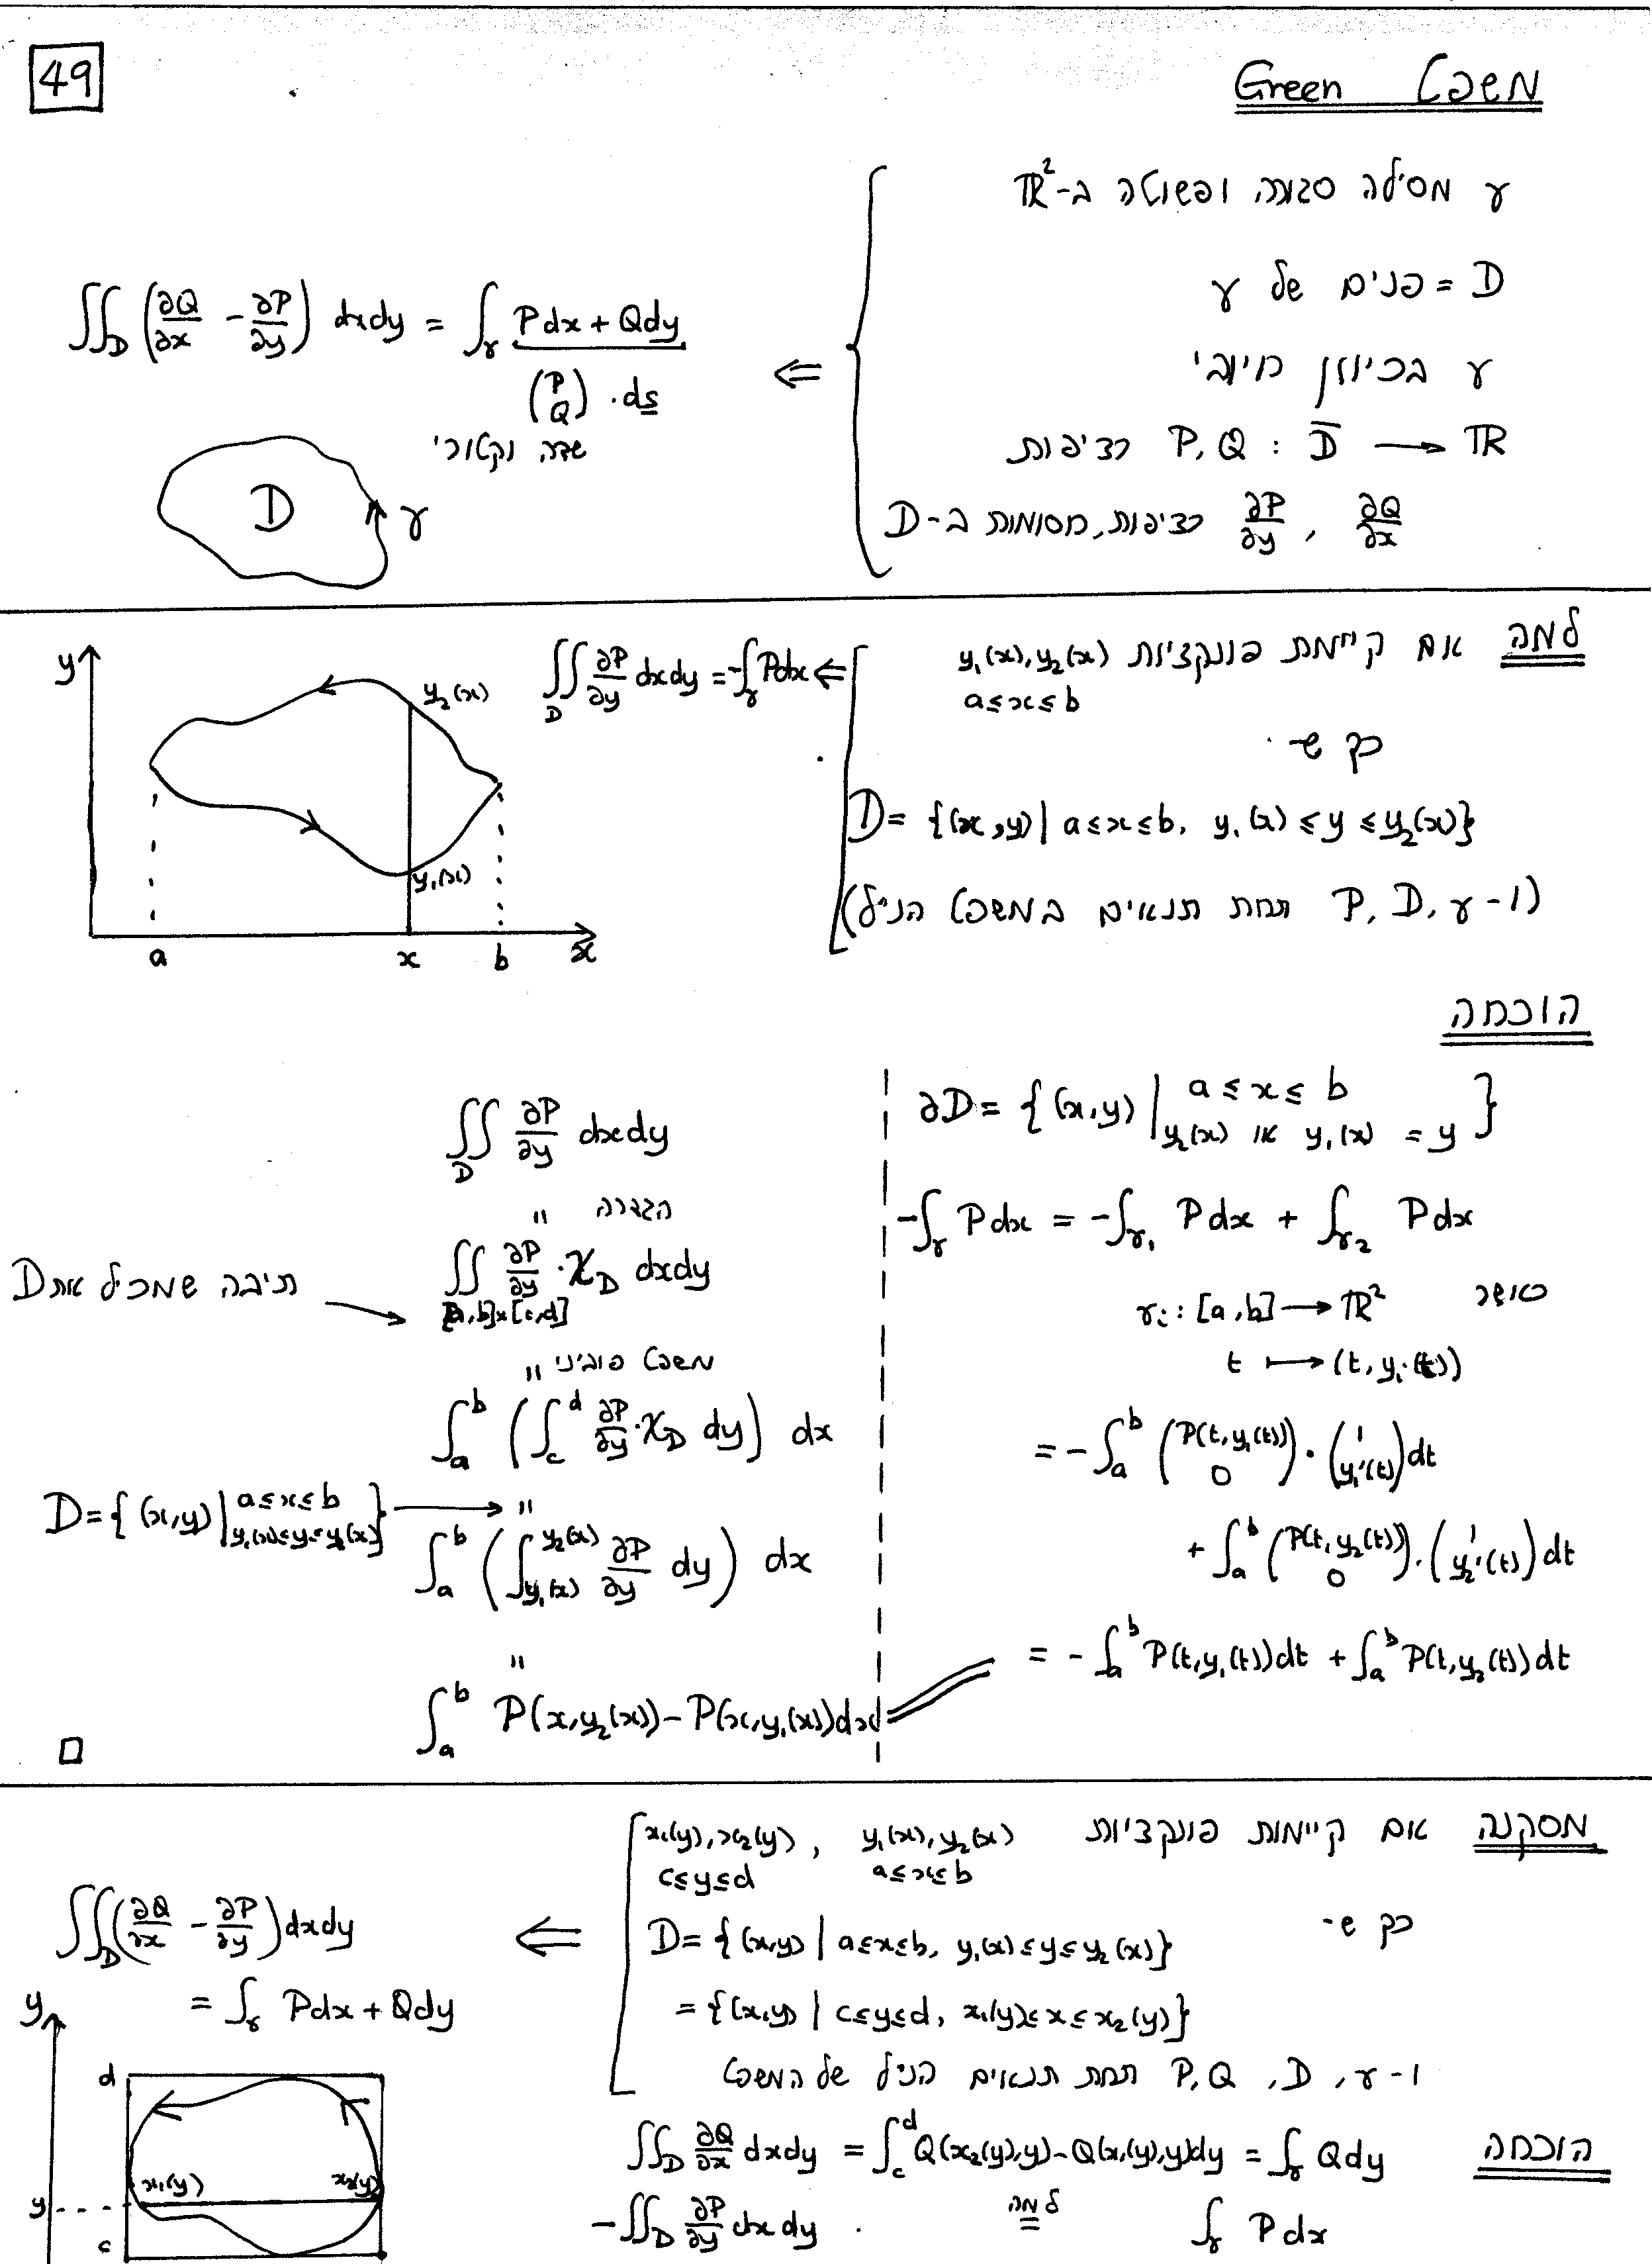 49
משפט Green
γ מסילה סגורה ופשוטה ב-ℝ²
D = פנים של γ
γ בכיוון חיובי
P, Q : D̄ ⟶ ℝ רציפות
∂Q/∂x , ∂P/∂y רציפות, חסומות ב-D
⇐
∬_D (∂Q/∂x − ∂P/∂y) dxdy = ∫_γ Pdx + Qdy
(P Q) · ds
שדה וקטורי
D γ
למה אם קיימת פונקציות y₁(x), y₂(x)
a ≤ x ≤ b
כך ש-
D = {(x,y) | a ≤ x ≤ b, y₁(x) ≤ y ≤ y₂(x)}
(ו-P, D, γ תחת תנאים במשפט הנ״ל)
⇐ ∬_D ∂P/∂y dxdy = −∫_γ Pdx
y y₂(x) y₁(x) a x b x
הוכחה
∂D = {(x,y) | a ≤ x ≤ b, y = y₁(x) או y₂(x)}
−∫_γ Pdx = −∫_γ₁ Pdx + ∫_γ₂ Pdx
כאשר γᵢ : [a,b] ⟶ ℝ²
t ⟼ (t, yᵢ(t))
= −∫_a^b (P(t,y₁(t)) 0) · (1 y₁'(t)) dt
+ ∫_a^b (P(t,y₂(t)) 0) · (1 y₂'(t)) dt
= −∫_a^b P(t,y₁(t))dt + ∫_a^b P(t,y₂(t))dt
∬_D ∂P/∂y dxdy
" הגדרה
∬_[a,b]×[c,d] ∂P/∂y · χ_D dxdy
תיבה שמכיל את D ⟶
" משפט פוביני
∫_a^b (∫_c^d ∂P/∂y · χ_D dy) dx
D = {(x,y) | a ≤ x ≤ b, y₁(x) ≤ y ≤ y₂(x)} ⟶ "
∫_a^b (∫_y₁(x)^y₂(x) ∂P/∂y dy) dx
"
∫_a^b P(x,y₂(x)) − P(x,y₁(x))dx
□
מסקנה אם קיימות פונקציות y₁(x), y₂(x) , x₁(y), x₂(y)
a ≤ x ≤ b c ≤ y ≤ d
כך ש-
D = {(x,y) | a ≤ x ≤ b, y₁(x) ≤ y ≤ y₂(x)}
= {(x,y) | c ≤ y ≤ d, x₁(y) ≤ x ≤ x₂(y)}
ו-P, Q, D, γ תחת תנאים הנ״ל של המשפט
⇐ ∬_D (∂Q/∂x − ∂P/∂y) dxdy
= ∫_γ Pdx + Qdy
y d x₁(y) x₂(y) y c
הוכחה ∬_D ∂Q/∂x dxdy = ∫_c^d Q(x₂(y),y) − Q(x₁(y),y)dy = ∫_γ Qdy
−∬_D ∂P/∂y dxdy = למה ∫_γ Pdx